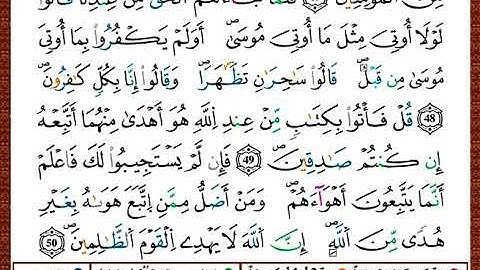 مِنَ ٱلْمُؤْمِنِينَ فَلَمَّا جَآءَهُمُ ٱلْحَقُّ مِنْ عِندِنَا قَالُواْ
لَوْلَا أُوتِىَ مِثْلَ مَا أُوتِىَ مُوسَىٰٓ أَوَلَمْ يَكْفُرُواْ بِمَا أُوتِىَ
مُوسَىٰ مِن قَبْلُ قَالُواْ سَٰحِرَٰنِ تَظَٰهَرَا وَقَالُواْ إِنَّا بِكُلٍّ كَٰفِرُونَ
48 قُلْ فَأْتُواْ بِكِتَٰبٍ مِّنْ عِندِ ٱللَّهِ هُوَ أَهْدَىٰ مِنْهُمَا أَتَّبِعْهُ
إِن كُنتُمْ صَٰدِقِينَ 49 فَإِن لَّمْ يَسْتَجِيبُواْ لَكَ فَٱعْلَمْ
أَنَّمَا يَتَّبِعُونَ أَهْوَآءَهُمْ وَمَنْ أَضَلُّ مِمَّنِ ٱتَّبَعَ هَوَىٰهُ بِغَيْرِ
هُدًى مِّنَ ٱللَّهِ إِنَّ ٱللَّهَ لَا يَهْدِى ٱلْقَوْمَ ٱلظَّٰلِمِينَ 50